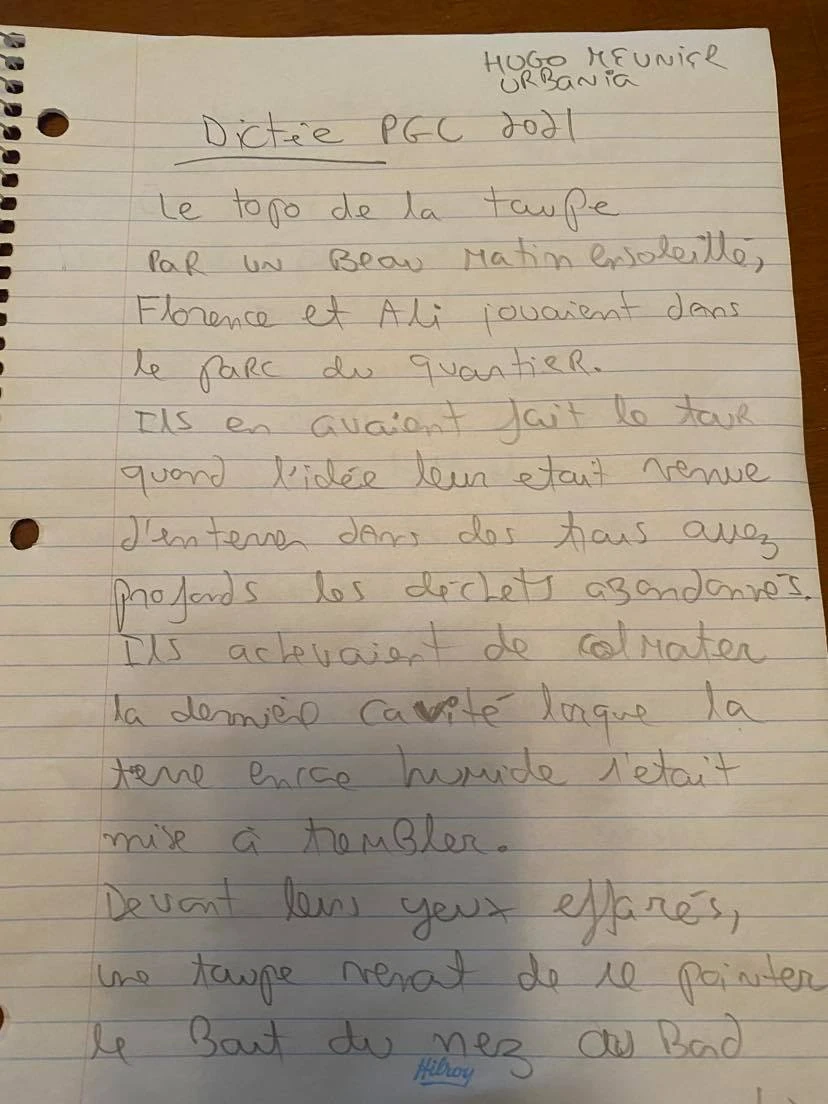 HUGO MEUNIER
URBANIA
Dictée PGC 2021
Le topo de la taupe
Par un Beau Matin ensoleillé,
Florence et Ali jouaient dans
le parc du quartier.
Ils en avaient fait le tour
quand l'idée leur etait venue
d'enterrer dans des trous assez
profonds les déchets abandonnés.
Ils achevaient de colmater
la dernière cavité lorque la
terre encore humide s'etait
mise à trembler.
Devant leurs yeux effarés,
une taupe venait de se pointer
le Bout du nez au Bord
Hilroy